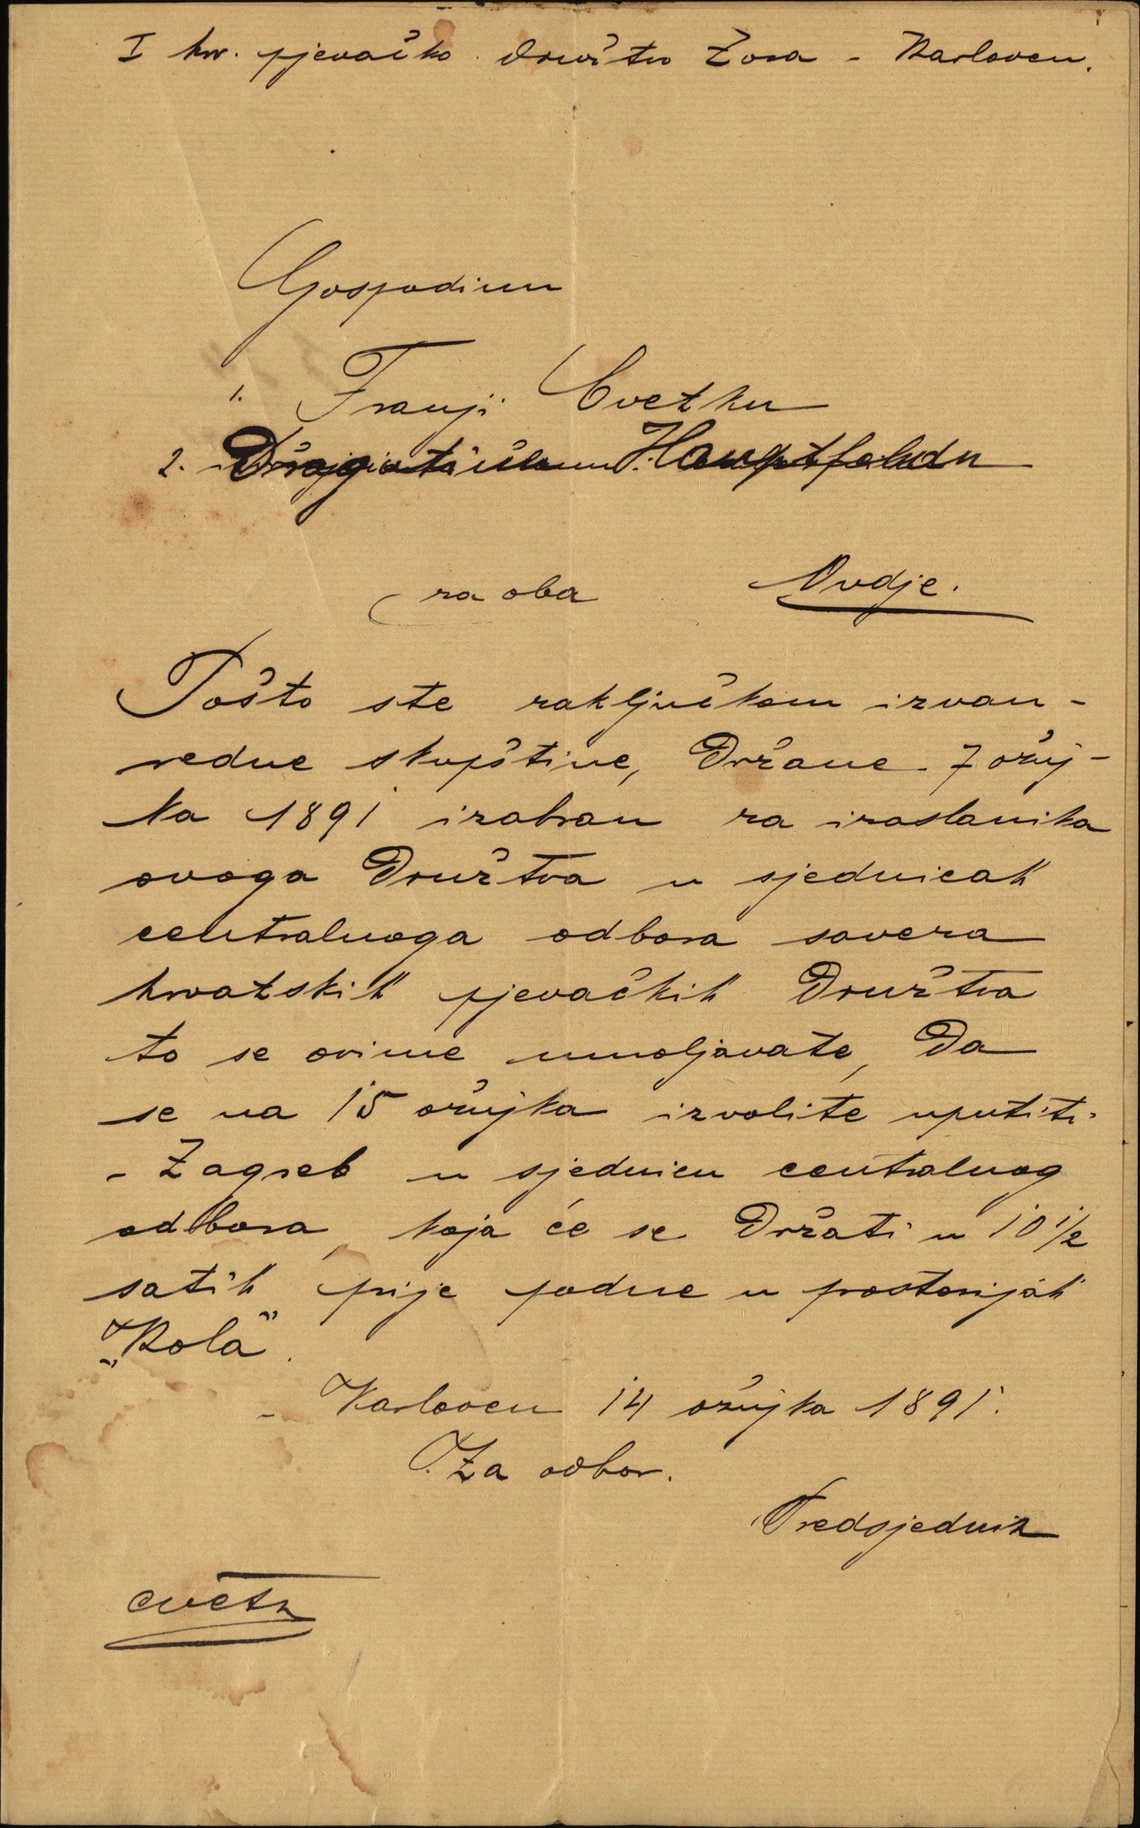 I hrv. pjevačko družtvo Zora - Karlovcu.
Gospodinu
1. Franji Cvetku
2. Dragutinu Hauptfeldu
za oba Ovdje.
Pošto ste zaključkom izvan-
redne skupštine, držane 7 ožuj-
ka 1891 izabran za izaslanika
ovoga družtva u sjednicah
centralnoga odbora saveza
hrvatskih pjevačkih družtva
to se ovime umoljavate, da
se na 15 ožujka izvolite uputiti
- Zagreb u sjednicu centralnog
odbora, koja će se držati u 10 1/2
satih prije podne u prostorijah
„Kola“.
- Karlovcu 14 ožujka 1891.
Za odbor.
Predsjednik